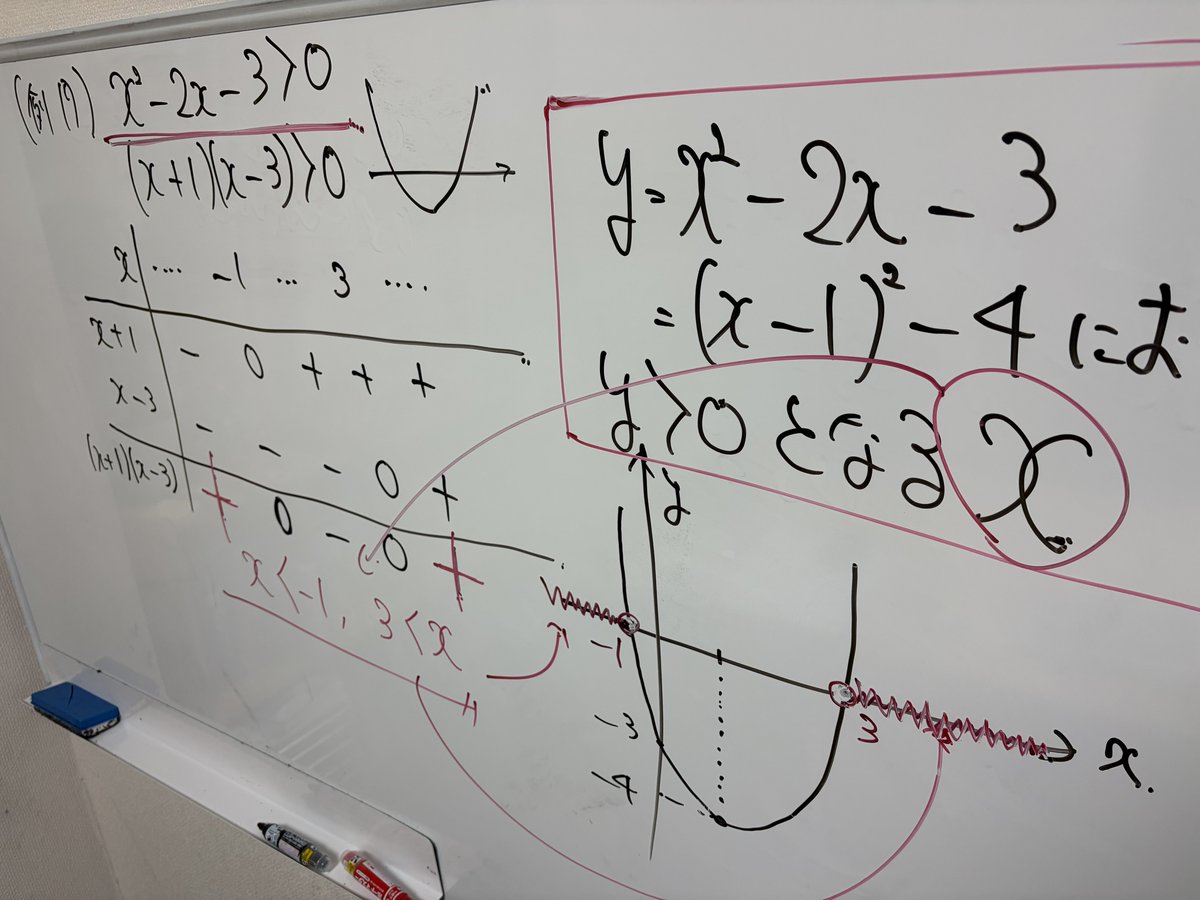 (例17) x²-2x-3>0
(x+1)(x-3)>0
x … -1 … 3 …
x+1 - 0 + + +
x-3 - - - 0 +
(x+1)(x-3) + 0 - 0 +
x<-1, 3<x
y=x²-2x-3
=(x-1)²-4にお
y>0となるx
y
-1
3
-3
-4
x